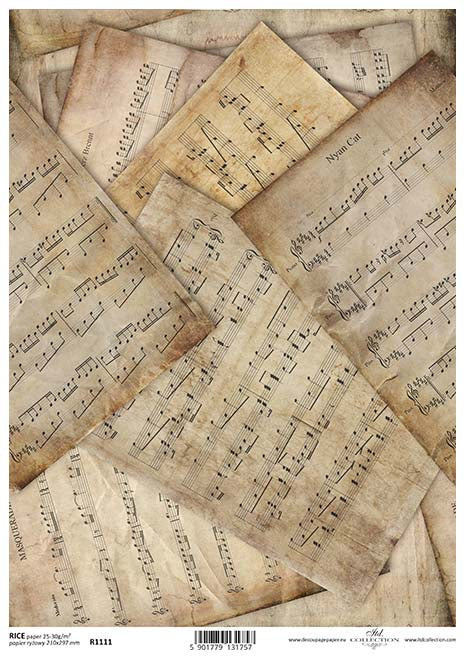 Nyan Cat
Piano
Piano
MASQUERA
RICE paper 25-30g/m²
papier ryżowy 210x297 mm
R1111
5 901779 131757
www.decoupagepaper.eu
itd.
COLLECTION
www.itdcollection.com